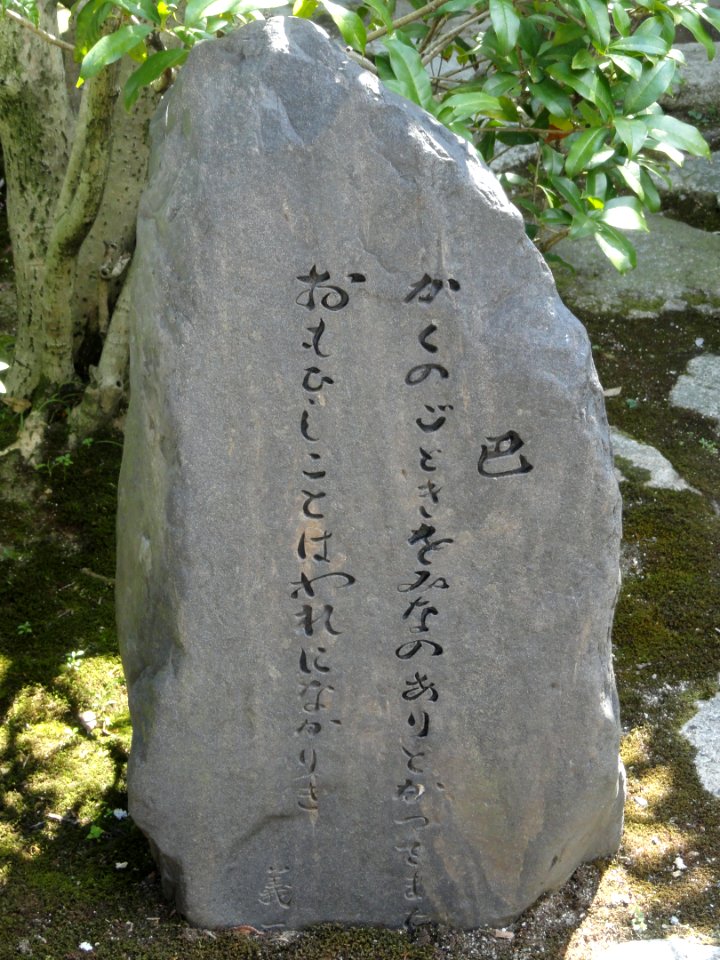 巴
かくのごときをみなのありとかつてまた
おもひしことはわれになかりき
義一